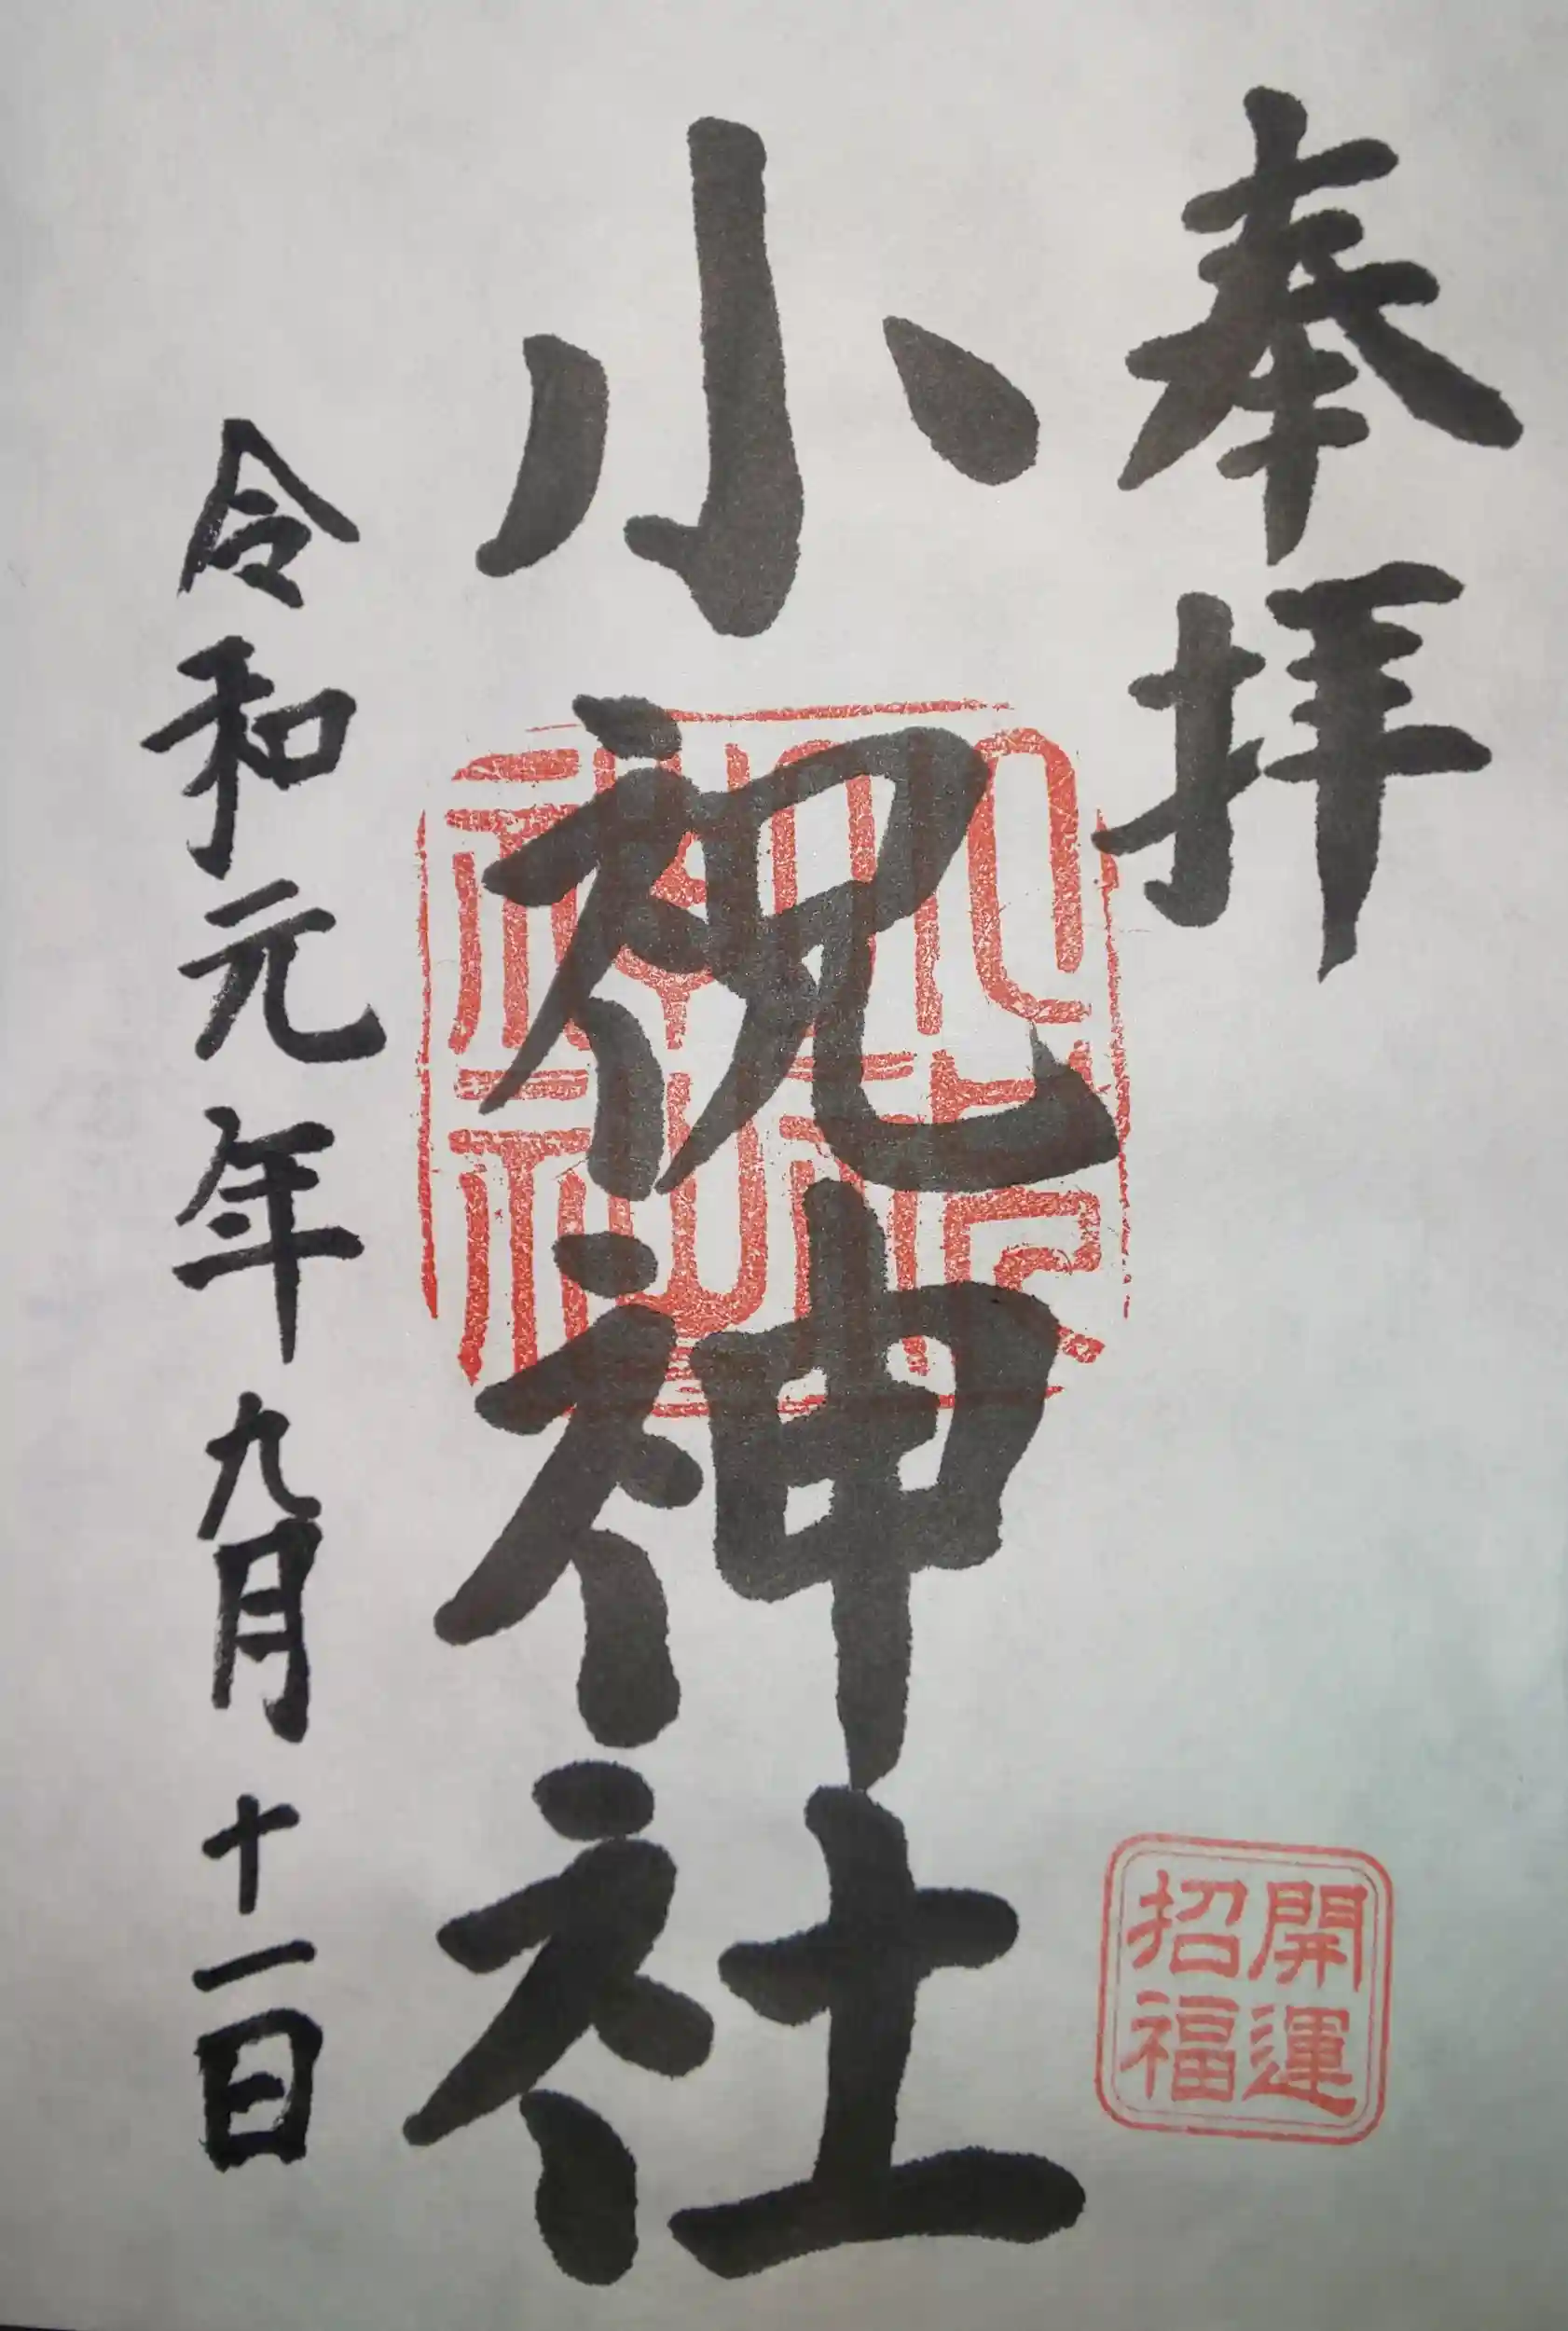 奉拝
開運
招福
小祝神社
令和元年九月十一日